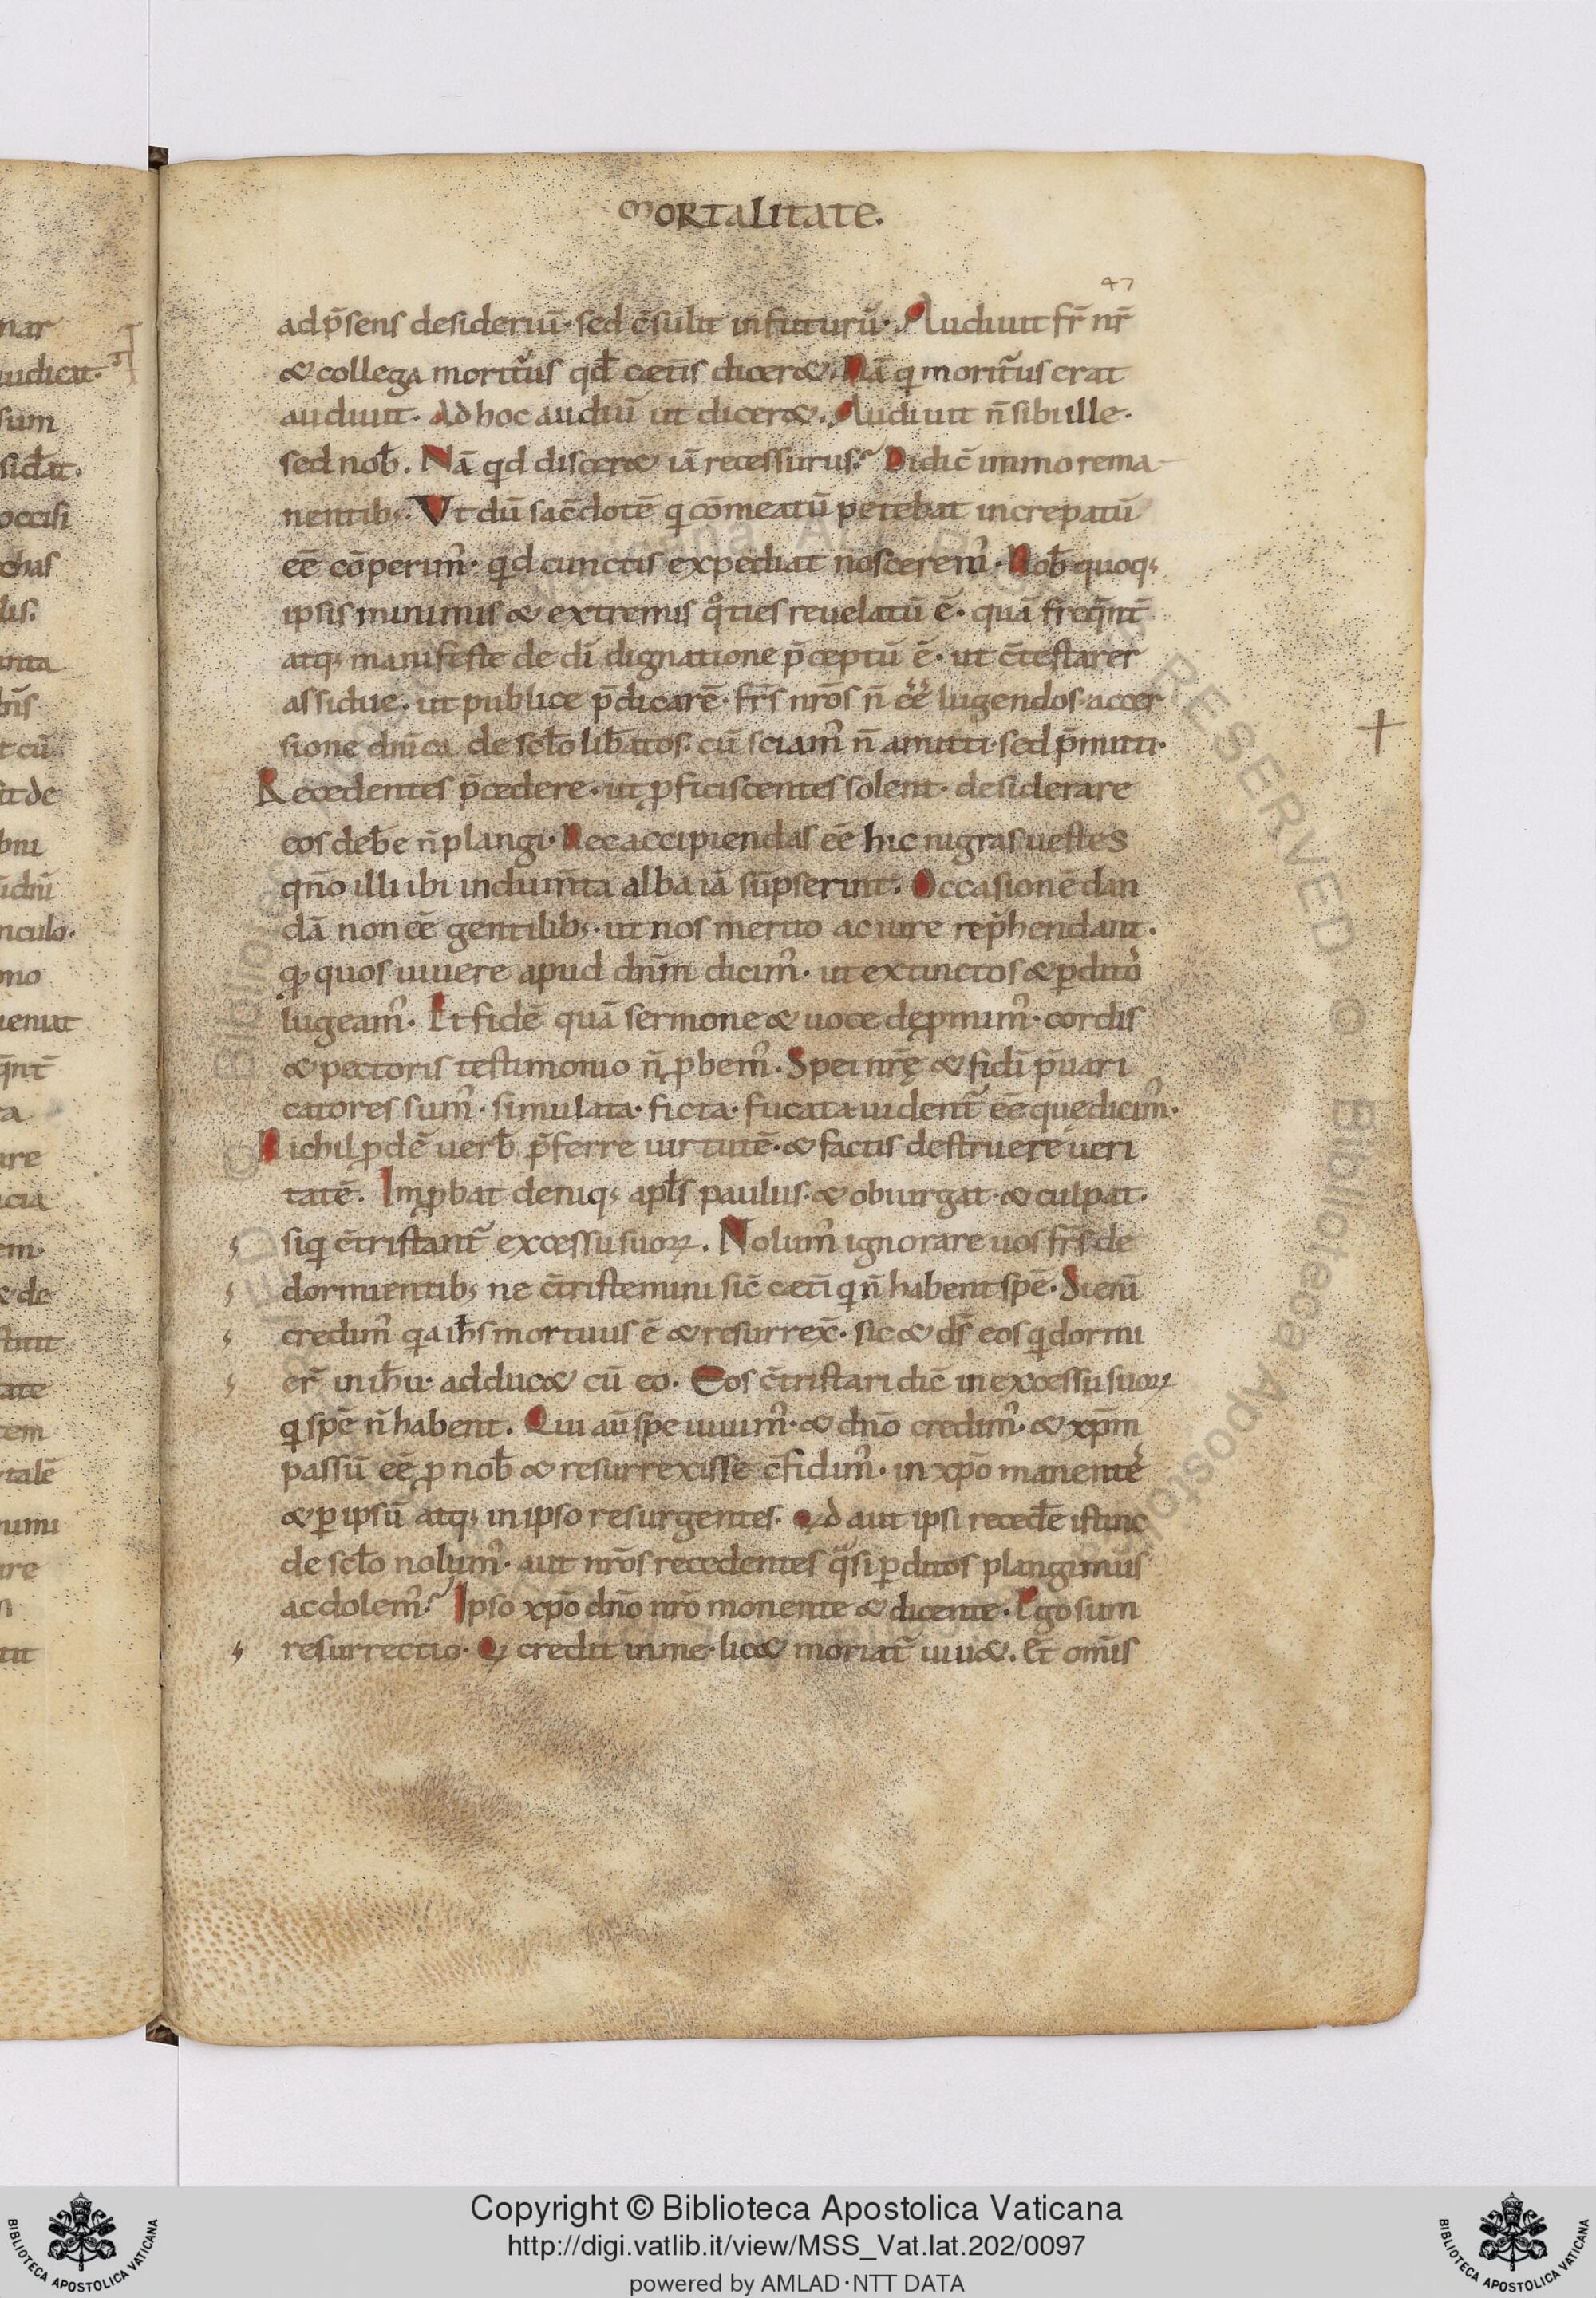 mortalitate.
47
ad p̄sens desideriū· sed c̄sulit in futurū· Audiuit fr̄ nr̄
& collega moritur᷒us qd̄ cæt̄is dicer&. Nā q moritur᷒us erat
audiuit. Ad hoc audiū ut dicer&. Audiuit n̄ sibi ille.
sed nob̄. Nā qd discer& iā recessurus? Didic̄ immo rema
nentib; Ut dū sac̄dotē q cōmeatū petebat increpatū
eē cōperim᷒· qd cunctis expediat noscerem᷒. Nob̄ quoq;
ipsis minimis & extremis qͦties reuelatū ē· quā freq̄nt̄
atq; manifeste de dī dignatione p̄ceptū ē· ut c̄testarer
assidue· ut publice p̄dicarē· fr̄s nr̄os n̄ eē lugendos· accer
sione dn̄ica de sclo lib̄atos· cū sciam᷒ n̄ amitti· sed p̄mitti·
Recedentes p̄cedere· ut ꝓficiscentes solent· desiderare
eos deb̄e n̄ plangi· Nec accipiendas eē hic nigras uestes
qn̄o illi ibi indum̄ta alba iā sūpserint. Occasionē dan
dā non eē gentilib;· ut nos merito ac iure rep̄hendant.
qꝫ quos uiuere apud dn̄m dicim᷒· ut extinctos & ꝑdito᷒
lugeam᷒· Et fidē quā sermone & uoce dęꝓmim᷒· cordis
& pectoris testimonio n̄ ꝓbem᷒. Spei nr̄ę & fidī p̄uari
catores sum᷒· simulata· ficta· fucata uident᷒ eē quę dicim᷒·
Nichil ꝓdē uerb̄ p̄ferre uirtutē· & factis destruere ueri
tatē. Imꝓbat deniq; apl̄s paulus· & obiurgat· & culpat·
siq c̄tristant᷒ excessu suoꝝ. Nolum᷒ ignorare uos fr̄s de
dormientib; ne c̄tristemini sic̄ cæt̄i q n̄ habent spē· Si eni᷒
credim᷒ qa ih̄s mortuus ē & resurrex̄· sic & ds̄ eos q dormi
er̄ in ih̄u· adduc& cū eo. Eos c̄tristari dic̄ in excessu suoꝝ
q spē n̄ habent. Qui aū spe uiuim᷒· & dn̄o credim᷒· & xp̄m
passū eē ꝓ nob̄ & resurrexisse c̄fidim᷒· in xp̄o manente᷒
& ꝑ ipsū atq; in ipso resurgentes. Qd aut ipsi reced̄e istinc
de sclo nolum᷒· aut nr̄os recedentes qͣsi ꝑditos plangimus
ac dolem᷒? Ipso xp̄o dn̄o nr̄o monente & dicente· Ego sum
resurrectio· Q credit in me· lic& moriat᷒ uiu&. Et omīs
Copyright © Biblioteca Apostolica Vaticana
http://digi.vatlib.it/view/MSS_Vat.lat.202/0097
powered by AMLAD·NTT DATA
BIBLIOTECA APOSTOLICA VATICANA
BIBLIOTECA APOSTOLICA VATICANA